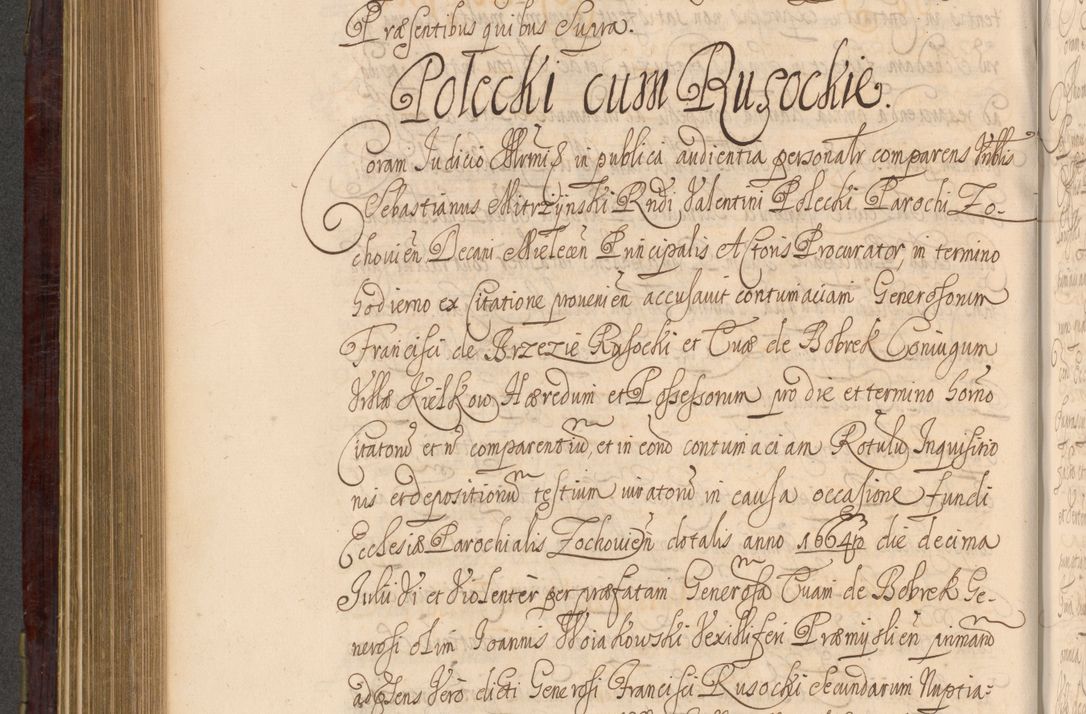 Præsentibus quibus Supra.
Polecki cum Rusockie.
Coram Judicio in publica audientia personalr comparens Nblis
Sebastianus Mitrzynski Rndi Valentini Polecki Parochi Zo-
chovien Decani Mielecen Principalis Actoris Procurator, in termino
hodierno ex Citatione provenien accusavit contumaciam Generosorum
Francisci de Brzezie Rusocki et Evæ de Bobrek Coniugum
Villæ Kielkow Hæredum et Possessorum pro die et termino horno
Citatoru et n comparentiu, et in eoru contumaciam Rotulu Inquisitio
nis et depositionu testium iuratoru in causa occasione fundi
Ecclesiæ Parochialis Zochovien dotalis anno 1664 die decima
Julii Vi et Violenter per præfatam Generosa Evam de Bobrek Ge-
nerosi olim Joannis Woiakowski Vexilliferi Præmyslien primaru
ad præsens Vero dicti Generosi Francisci Rusocki secundarum Nuptia-